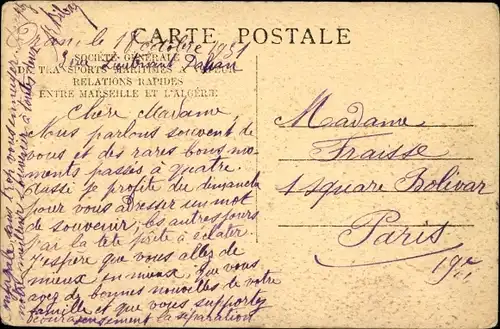 CARTE POSTALE
SOCIÉTÉ GÉNÉRALE
DE TRANSPORTS MARITIMES A VAPEUR
RELATIONS RAPIDES
ENTRE MARSEILLE ET L'ALGÉRIE
le 18 octobre 1931
Chère Madame,
Nous parlons souvent de
vous et des rares bons mo-
ments passés à quatre.
Aussi je profite du dimanche
pour vous adresser un mot
de souvenir; les autres jours
j'ai la tête prête à éclater.
J'espère que vous allez de
mieux en mieux, que vous
avez de bonnes nouvelles de votre
famille et que vous supportez
courageusement la séparation
sans trop vous ennuyer
notre meilleur souvenir à toutes deux
Madame
Fraisse
1 square Bolivar
Paris
19e